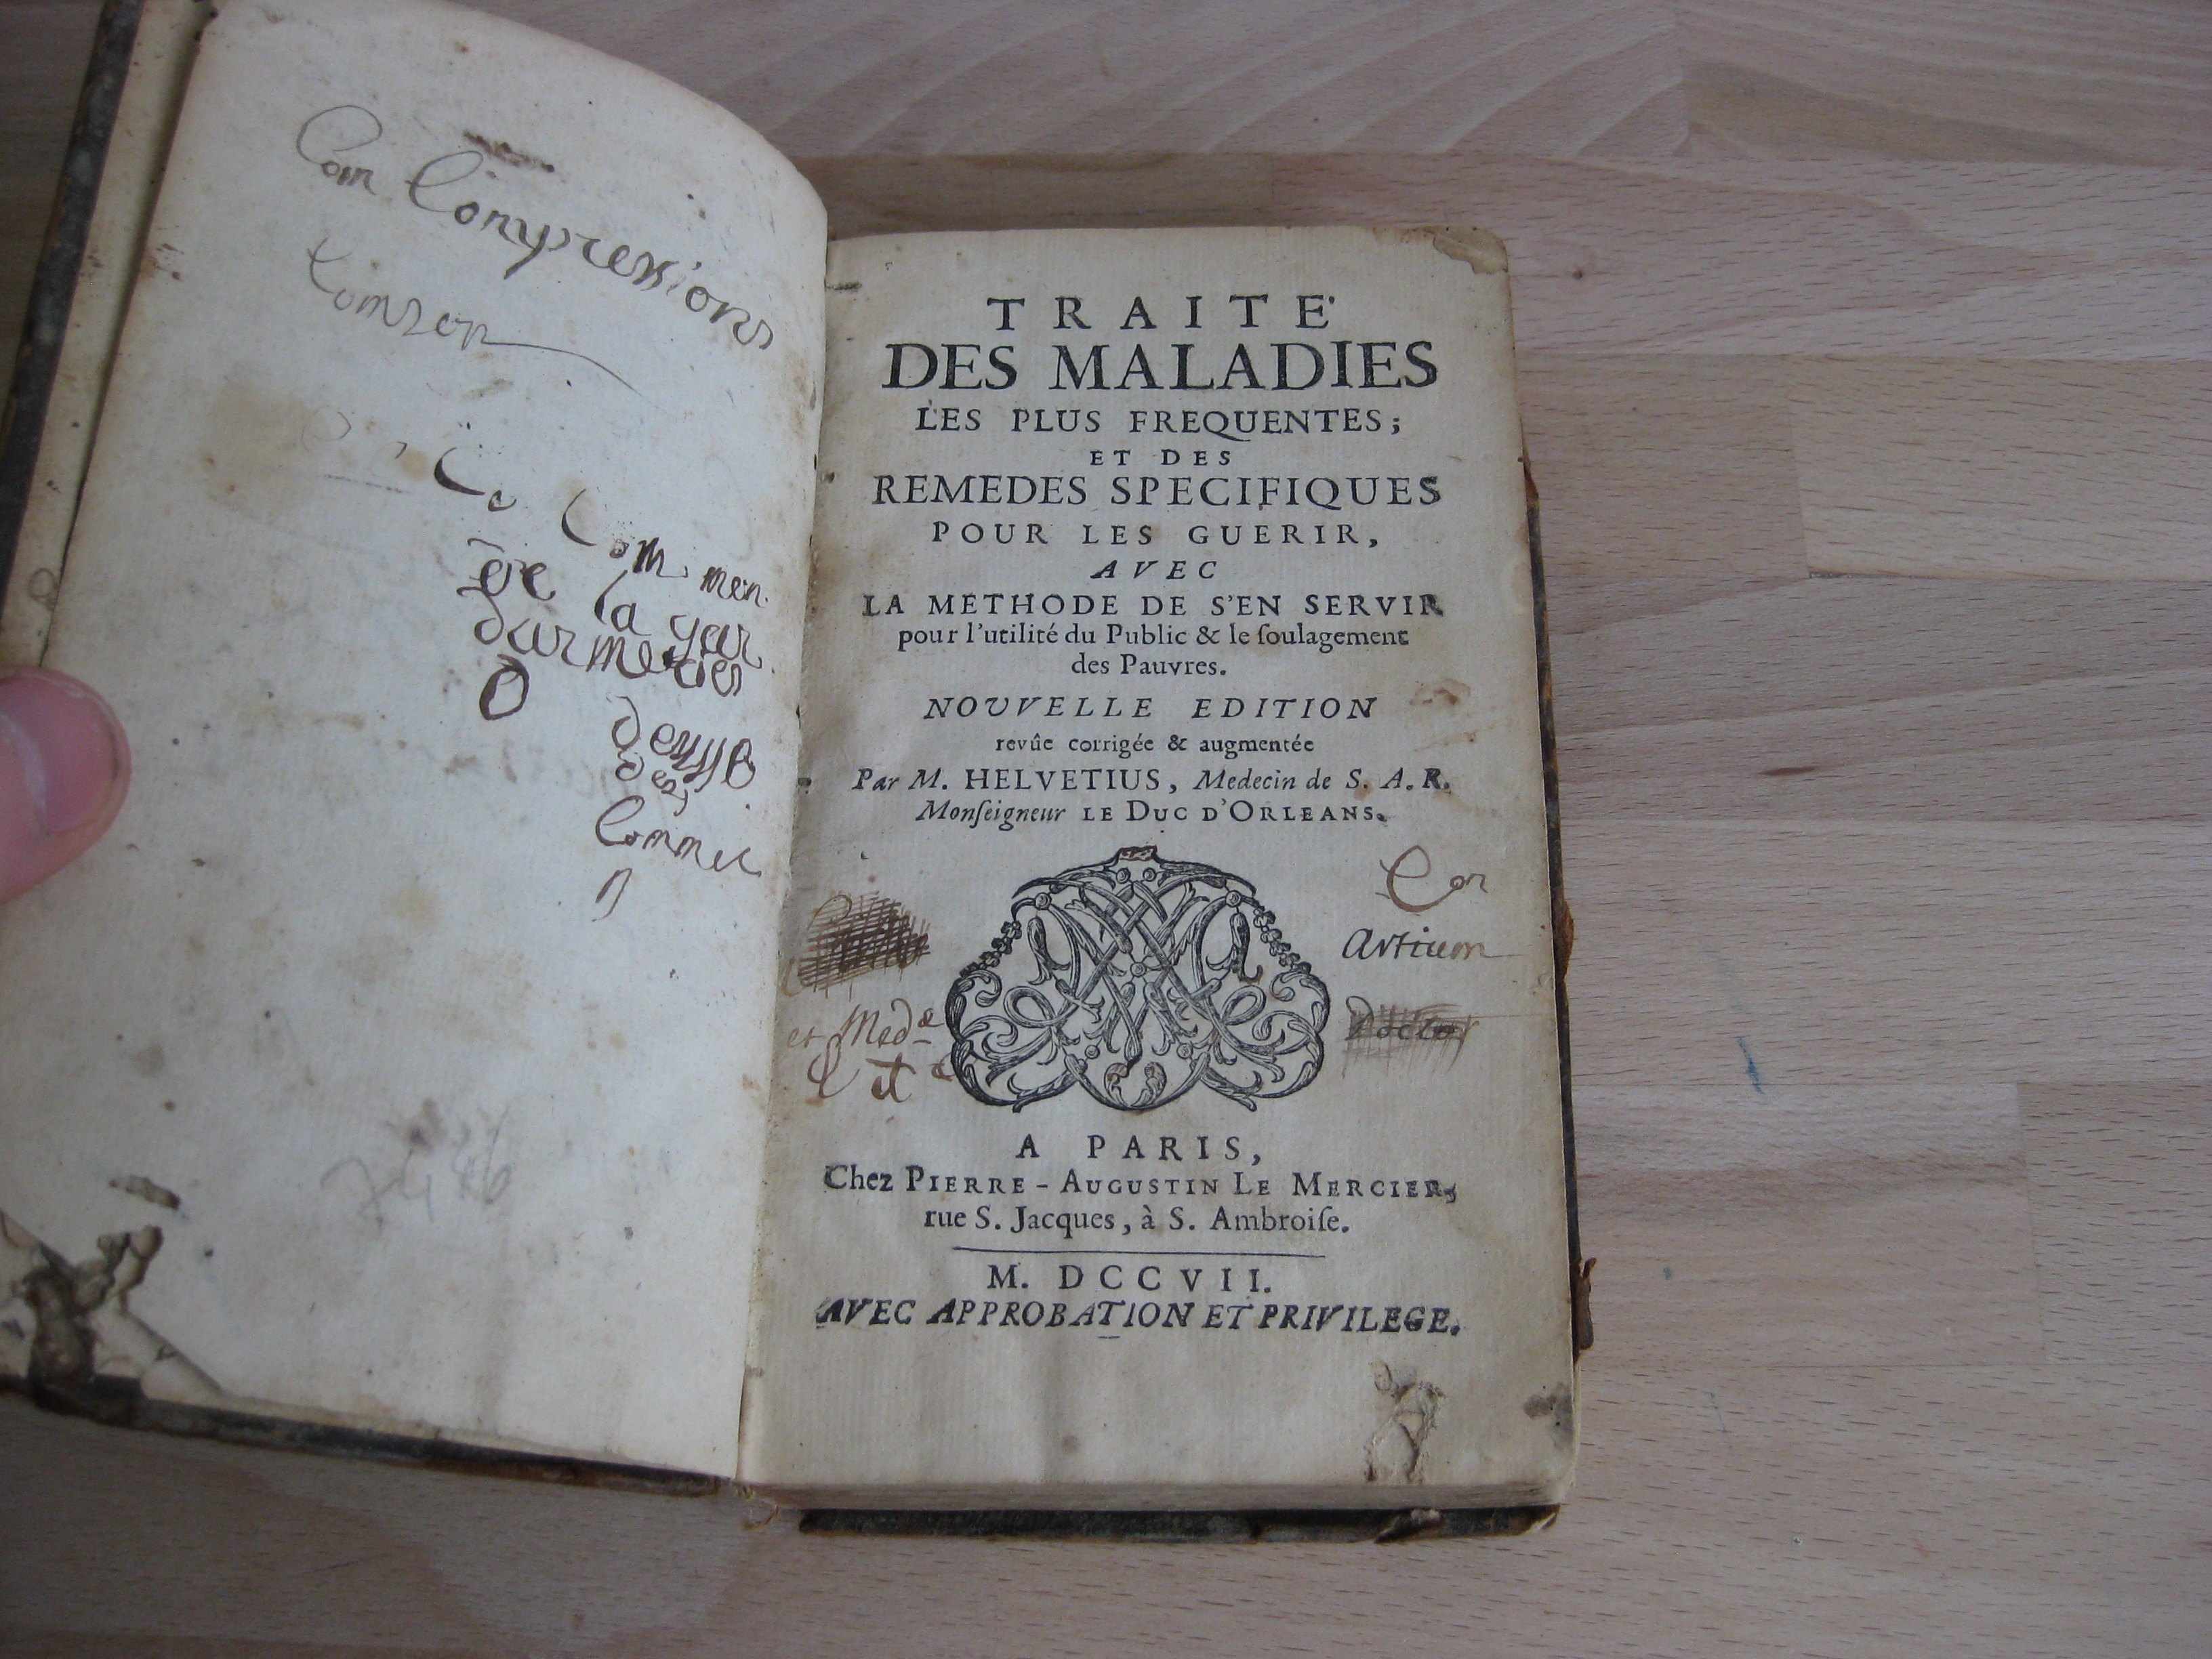 Com Compressions
Ce Commen
de la gar
O
des
Commec
TRAITÉ
DES MALADIES
LES PLUS FREQUENTES;
ET DES
REMEDES SPECIFIQUES
POUR LES GUERIR,
AVEC
LA METHODE DE S'EN SERVIR
pour l'utilité du Public & le ſoulagement
des Pauvres.
NOUVELLE EDITION
revûe corrigée & augmentée
Par M. HELVETIUS, Medecin de S. A. R.
Monſeigneur LE DUC D'ORLEANS.
Con
Artium
et Medæ
et
Doctor
A PARIS,
Chez PIERRE-AUGUSTIN LE MERCIER,
rue S. Jacques, à S. Ambroiſe.
M. DCCVII.
AVEC APPROBATION ET PRIVILEGE.